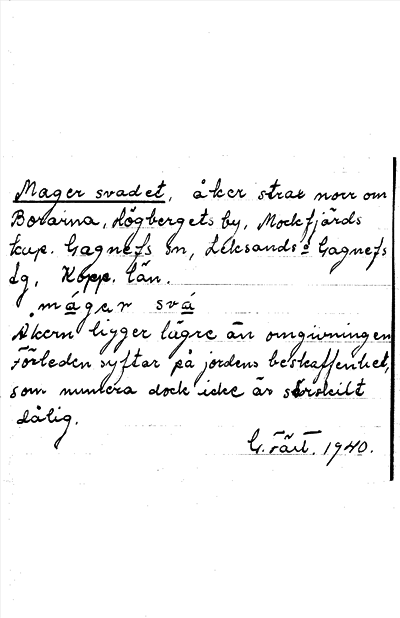 Mager svadet, åker strax norr om
Borarna, Högbergets by, Mockfjärds
kap. Gagnefs sn, Leksands o Gagnefs
tg, Kopp. län.
måger svá
Åkern ligger lägre än omgivningen
Förleden syftar på jordens beskaffenhet,
som numera dock icke är särskilt
dålig.
G. 1940.